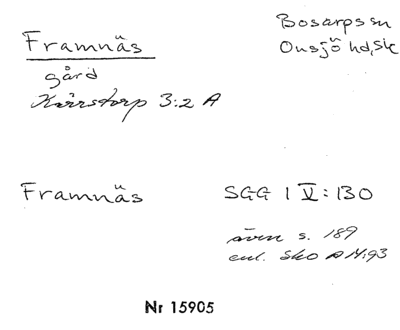 Framnäs
Bosarpssn
Onsjö hd, Sk
gård
Kärrstorp 3:2 A
Framnäs
SGG I V: 130
även s. 189
enl. Sko A M:93
Nr 15905